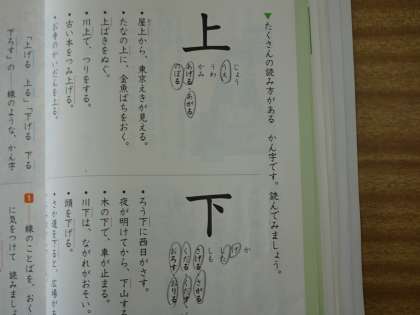 ▼たくさんの読み方がある かん字です。読んでみましょう。
上
じょう
うえ
うわ
かみ
あげる
あがる
のぼる
・屋上から、東京えきが見える。
・たなの上に、金魚ばちをおく。
・上ばきをぬぐ。
・川上で、つりをする。
・古い本をつみ上げる。
下
か
げ
した
しも
さげる
さがる
くだる
くだす
おろす
おりる
・ろう下に西日がさす。
・夜が明けてから、下山する
・木の下で、車が止まる。
・川下は、ながれがおそい。
・頭を下げる。
・さか道を下ると、広場が
「上げる 上る」「下げる 下る
下ろす」の 様のような、かん字
1
線のことばを、おく
に気をつけて 読みましょ